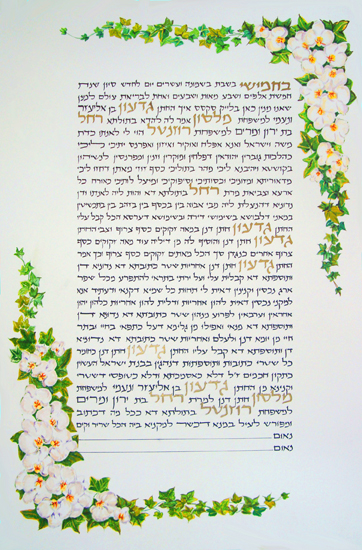 בחמישי בשבת בשמונה ועשרים יום לחדש סיון שנת
חמשת אלפים ושבע מאות ושבעים ואחת לבריאת עולם למנין
שאנו מנין כאן איך החתן גדעון בן אליעזר
ונעמי למשפחת מלסון אמר לה להדא בתולתא רחל
בת ירון ומרים למשפחת רוזנטל הוי לי לאנתו כדת
משה וישראל ואנא אפלח ואוקיר ואיזון ואפרנס יתיכי ליכי
כהלכות גוברין יהודאין דפלחין ומוקרין וזנין ומפרנסין לנשיהון
בקושטא ויהבנא ליכי מהר בתוליכי כסף זוזי מאתן דחזי ליכי
מדאוריתא ומזוניכי וכסותיכי וסיפוקיכי ומיעל לותיכי כאורח כל
ארעא וצביאת מרת רחל בתולתא דא והות ליה לאנתו ודן
נדוניא דהנעלת ליה מבי אבוה בין בכסף בין בזהב בין בתכשיטין
במאני דלבושא בשימושי דירה ובשימושא דערסא הכל קבל עליו
החתן גדעון חתן דנן במאה זקוקים כסף צרוף וצבי החתן
גדעון חתן דנן והוסיף לה מן דיליה עוד מאה זקוקים כסף
צרוף אחרים כנגדן סך הכל מאתים זקוקים כסף צרוף וכך אמר
החתן גדעון חתן דנן אחריות שטר כתובתא דא נדוניא דן
ותוספתא דא קבלית עלי ועל ירתי בתראי להתפרע מכל שפר
ארג נכסין וקנינין דאית לי תחות כל שמיא דקנאי ודעתיד אנא
למקני נכסין דאית להון אחריות ודלית להון אחריות כלהון יהון
אחראין וערבאין לפרוע מנהון שטר כתובתא דא נדוניא דן
ותוספתא דא מנאי ואפילו מן גלימא דעל כתפאי בחיי ובתר
חיי מן יומא דנן ולעלם ואחריות שטר כתובתא דא נדוניא
דן ותוספתא דא קבל עליו החתן גדעון חתן דנן כחומר
כל שטרי כתובות ותוספתות דנהגין בבנת ישראל העשוין
כתקון חכמים ז״ל דלא כאסמכתא ודלא כטופסי דשטרי
וקנינא מן החתן גדעון בן אליעזר ונעמי למשפחת
מלסון חתן דנן למרת רחל בת ירון ומרים
למשפחת רוזנטל בתולתא דא ככל מה דכתוב
ומפורש לעיל במנא דכשר למקניא ביה הכל שריר וקים
נאום
נאום